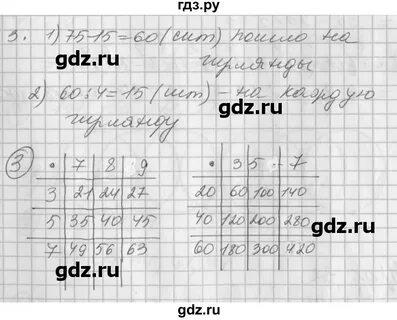 гдз.ру
3. 1) 75-15=60 (шт) пошло на
гирлянды
2) 60:4=15 (шт) - на каждую
гирлянду
3 • 7 8 9
3 21 24 27
5 35 40 45
7 49 56 63
• 3 5 7
20 60 100 140
40 120 200 280
60 180 300 420
гдз.ру
гдз.ру
гдз.ру
гдз.ру
гдз.ру
гдз.ру